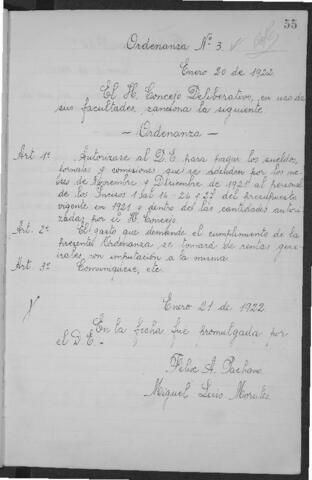 55
Ordenanza Nº 3
Enero 20 de 1922
El H. Concejo Deliberativo, en uso de
sus facultades, sanciona la siguiente
- Ordenanza -
Art 1º Autorizase al D.E. para pagar los sueldos,
jornales y comisiones que se adeudan por los me-
ses de Noviembre y Diciembre de 1921 al personal
de los Incisos 1 al 16, 26 y 27 del presupuesto
vigente en 1921 y dentro de las cantidades autori-
zadas por el H Concejo.
Art. 2º El gasto que demande el cumplimiento de la
presente Ordenanza, se tomará de rentas gene-
rales, con imputación a la misma
Art. 3º Comuníquese, etc.
Enero 21 de 1922
En la fecha fué promulgada por
el D.E.-
Felix A. Pachano
Miguel Luis Morales